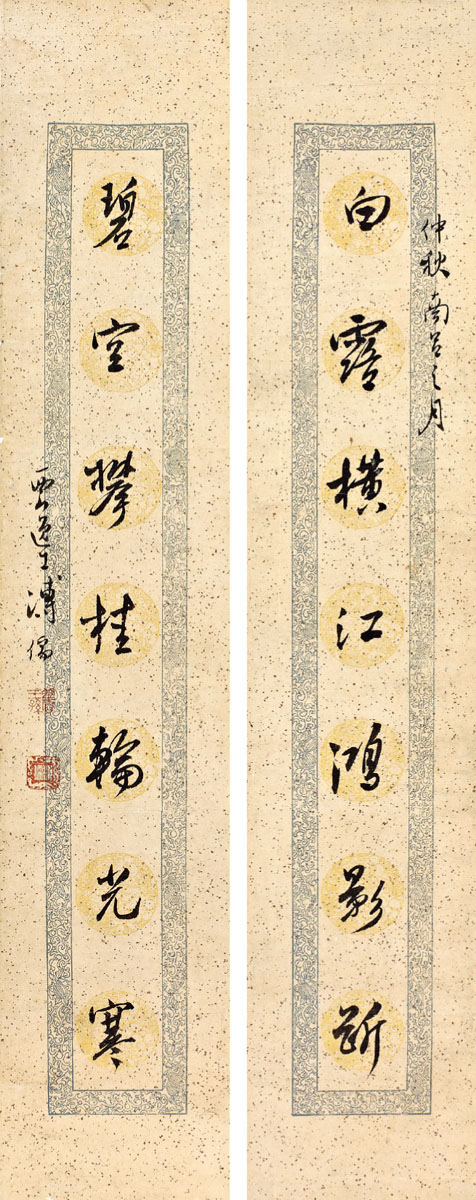 仲秋南呂之月
白露橫江鴻影斷
碧空攀桂輪光寒
西山逸士溥儒